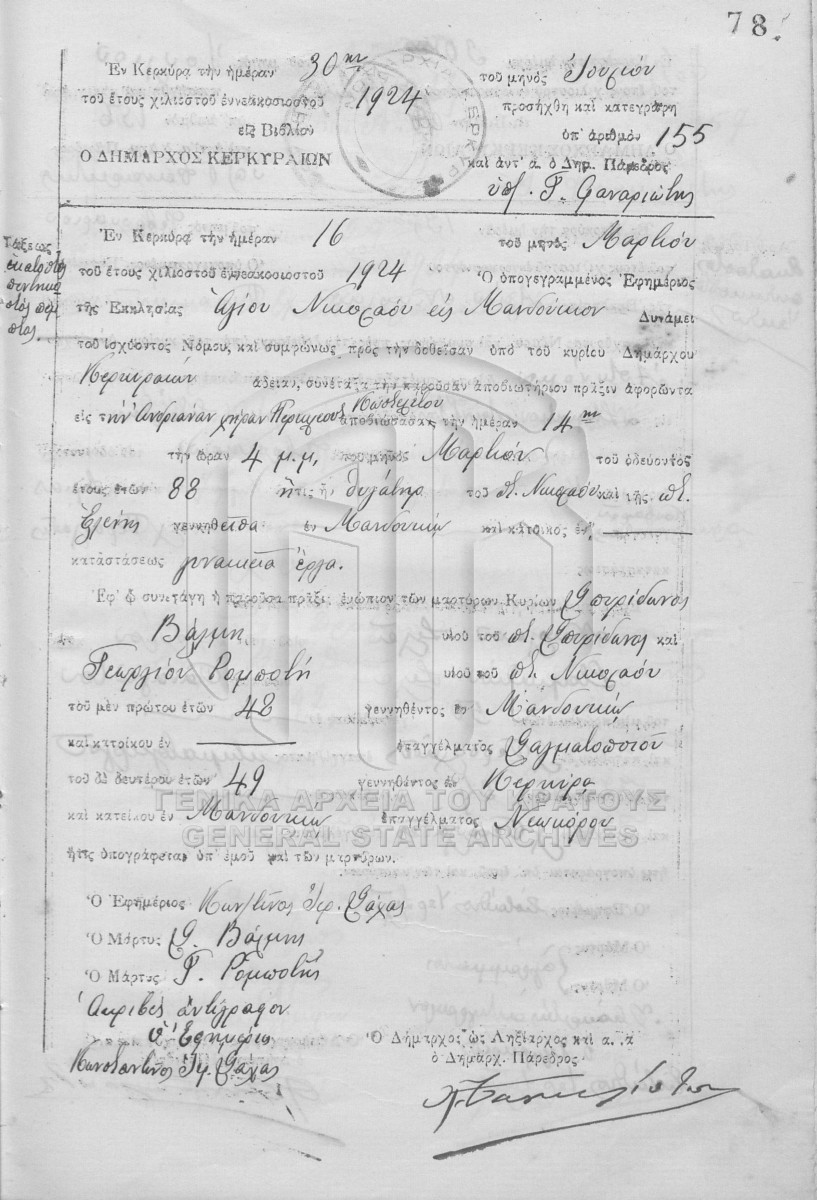 78
Ἐν Κερκύρᾳ τὴν ἡμέραν 30ην τοῦ μηνὸς Ἰουνίου
τοῦ ἔτους χιλιοστοῦ ἐννεακοσιοστοῦ 1924 προσήχθη καὶ κατεγράφη
εἰς Βιβλίον ὑπ' ἀριθμὸν 155
Ο ΔΗΜΑΡΧΟΣ ΚΕΡΚΥΡΑΙΩΝ καὶ ἀντ' α. ὁ Δημ. Πάρεδρος
Γ. Φαναριώτης
Ἐν Κερκύρᾳ τὴν ἡμέραν 16 τοῦ μηνὸς Μαρτίου
Τάξεως
ἑκατοστὸς
πεντηκο
στὸς πέμ
πτος.
τοῦ ἔτους χιλιοστοῦ ἐννεακοσιοστοῦ 1924 Ὁ ὑπογεγραμμένος Ἐφημέριος
τῆς Ἐκκλησίας Ἁγίου Νικολάου εἰς Μανδούκιον Δυνάμει
τοῦ ἰσχύοντος Νόμου, καὶ συμφώνως πρὸς τὴν δοθεῖσαν ὑπὸ τοῦ κυρίου Δημάρχου
Κερκυραίων ἄδειαν, συνέταξα τὴν παροῦσαν ἀποβιωτήριον πρᾶξιν ἀφορῶντα
εἰς τὴν Ἀνδριάναν χήραν Περικλέους ἀποβιώσασαν τὴν ἡμέραν 14ην
τὴν ὥραν 4 μ.μ. τοῦ μηνὸς Μαρτίου τοῦ ὁδεύοντος
ἔτους ἐτῶν 88 ἥτις ἦν θυγάτηρ τοῦ πτ. Νικολάου καὶ τῆς πτ.
Ἑλένης γεννηθεῖσα ἐν Μανδουκίῳ καὶ κάτοικος ἐν
καταστάσεως γυναικεῖα ἔργα.
Ἐφ' ᾧ συνετάγη ἡ παροῦσα πρᾶξις ἐνώπιον τῶν μαρτύρων Κυρίων Σπυρίδωνος
Βάλμη υἱοῦ τοῦ πτ. Σπυρίδωνος καὶ
Γεωργίου Ρομποτῆ υἱοῦ τοῦ πτ. Νικολάου
τοῦ μὲν πρώτου ἐτῶν 48 γεννηθέντος ἐν Μανδουκίῳ
καὶ κατοίκου ἐν ἐπαγγέλματος Σαγματοποιοῦ
τοῦ δὲ δευτέρου ἐτῶν 49 γεννηθέντος ἐν Κερκύρᾳ
ΓΕΝΙΚΑ ΑΡΧΕΙΑ ΤΟΥ ΚΡΑΤΟΥΣ
καὶ κατοίκου ἐν Μανδουκίῳ ἐπαγγέλματος Νεωκόρου
GENERAL STATE ARCHIVES
ἥτις ὑπογράφεται ὑπ' ἐμοῦ καὶ τῶν μαρτύρων.
Ὁ Ἐφημέριος Κων/τῖνος Ἱερ. Σάχας
Ὁ Μάρτυς Σ. Βάλμης
Ὁ Μάρτυς Γ. Ρομποτῆς
Ἀκριβὲς ἀντίγραφον
Ὁ Ἐφημέριος
Κωνσταντῖνος Ἱερ. Σάχας
Ὁ Δήμαρχος ὡς Ληξίαρχος καὶ α. ἀ
ὁ Δημαρχ. Πάρεδρος